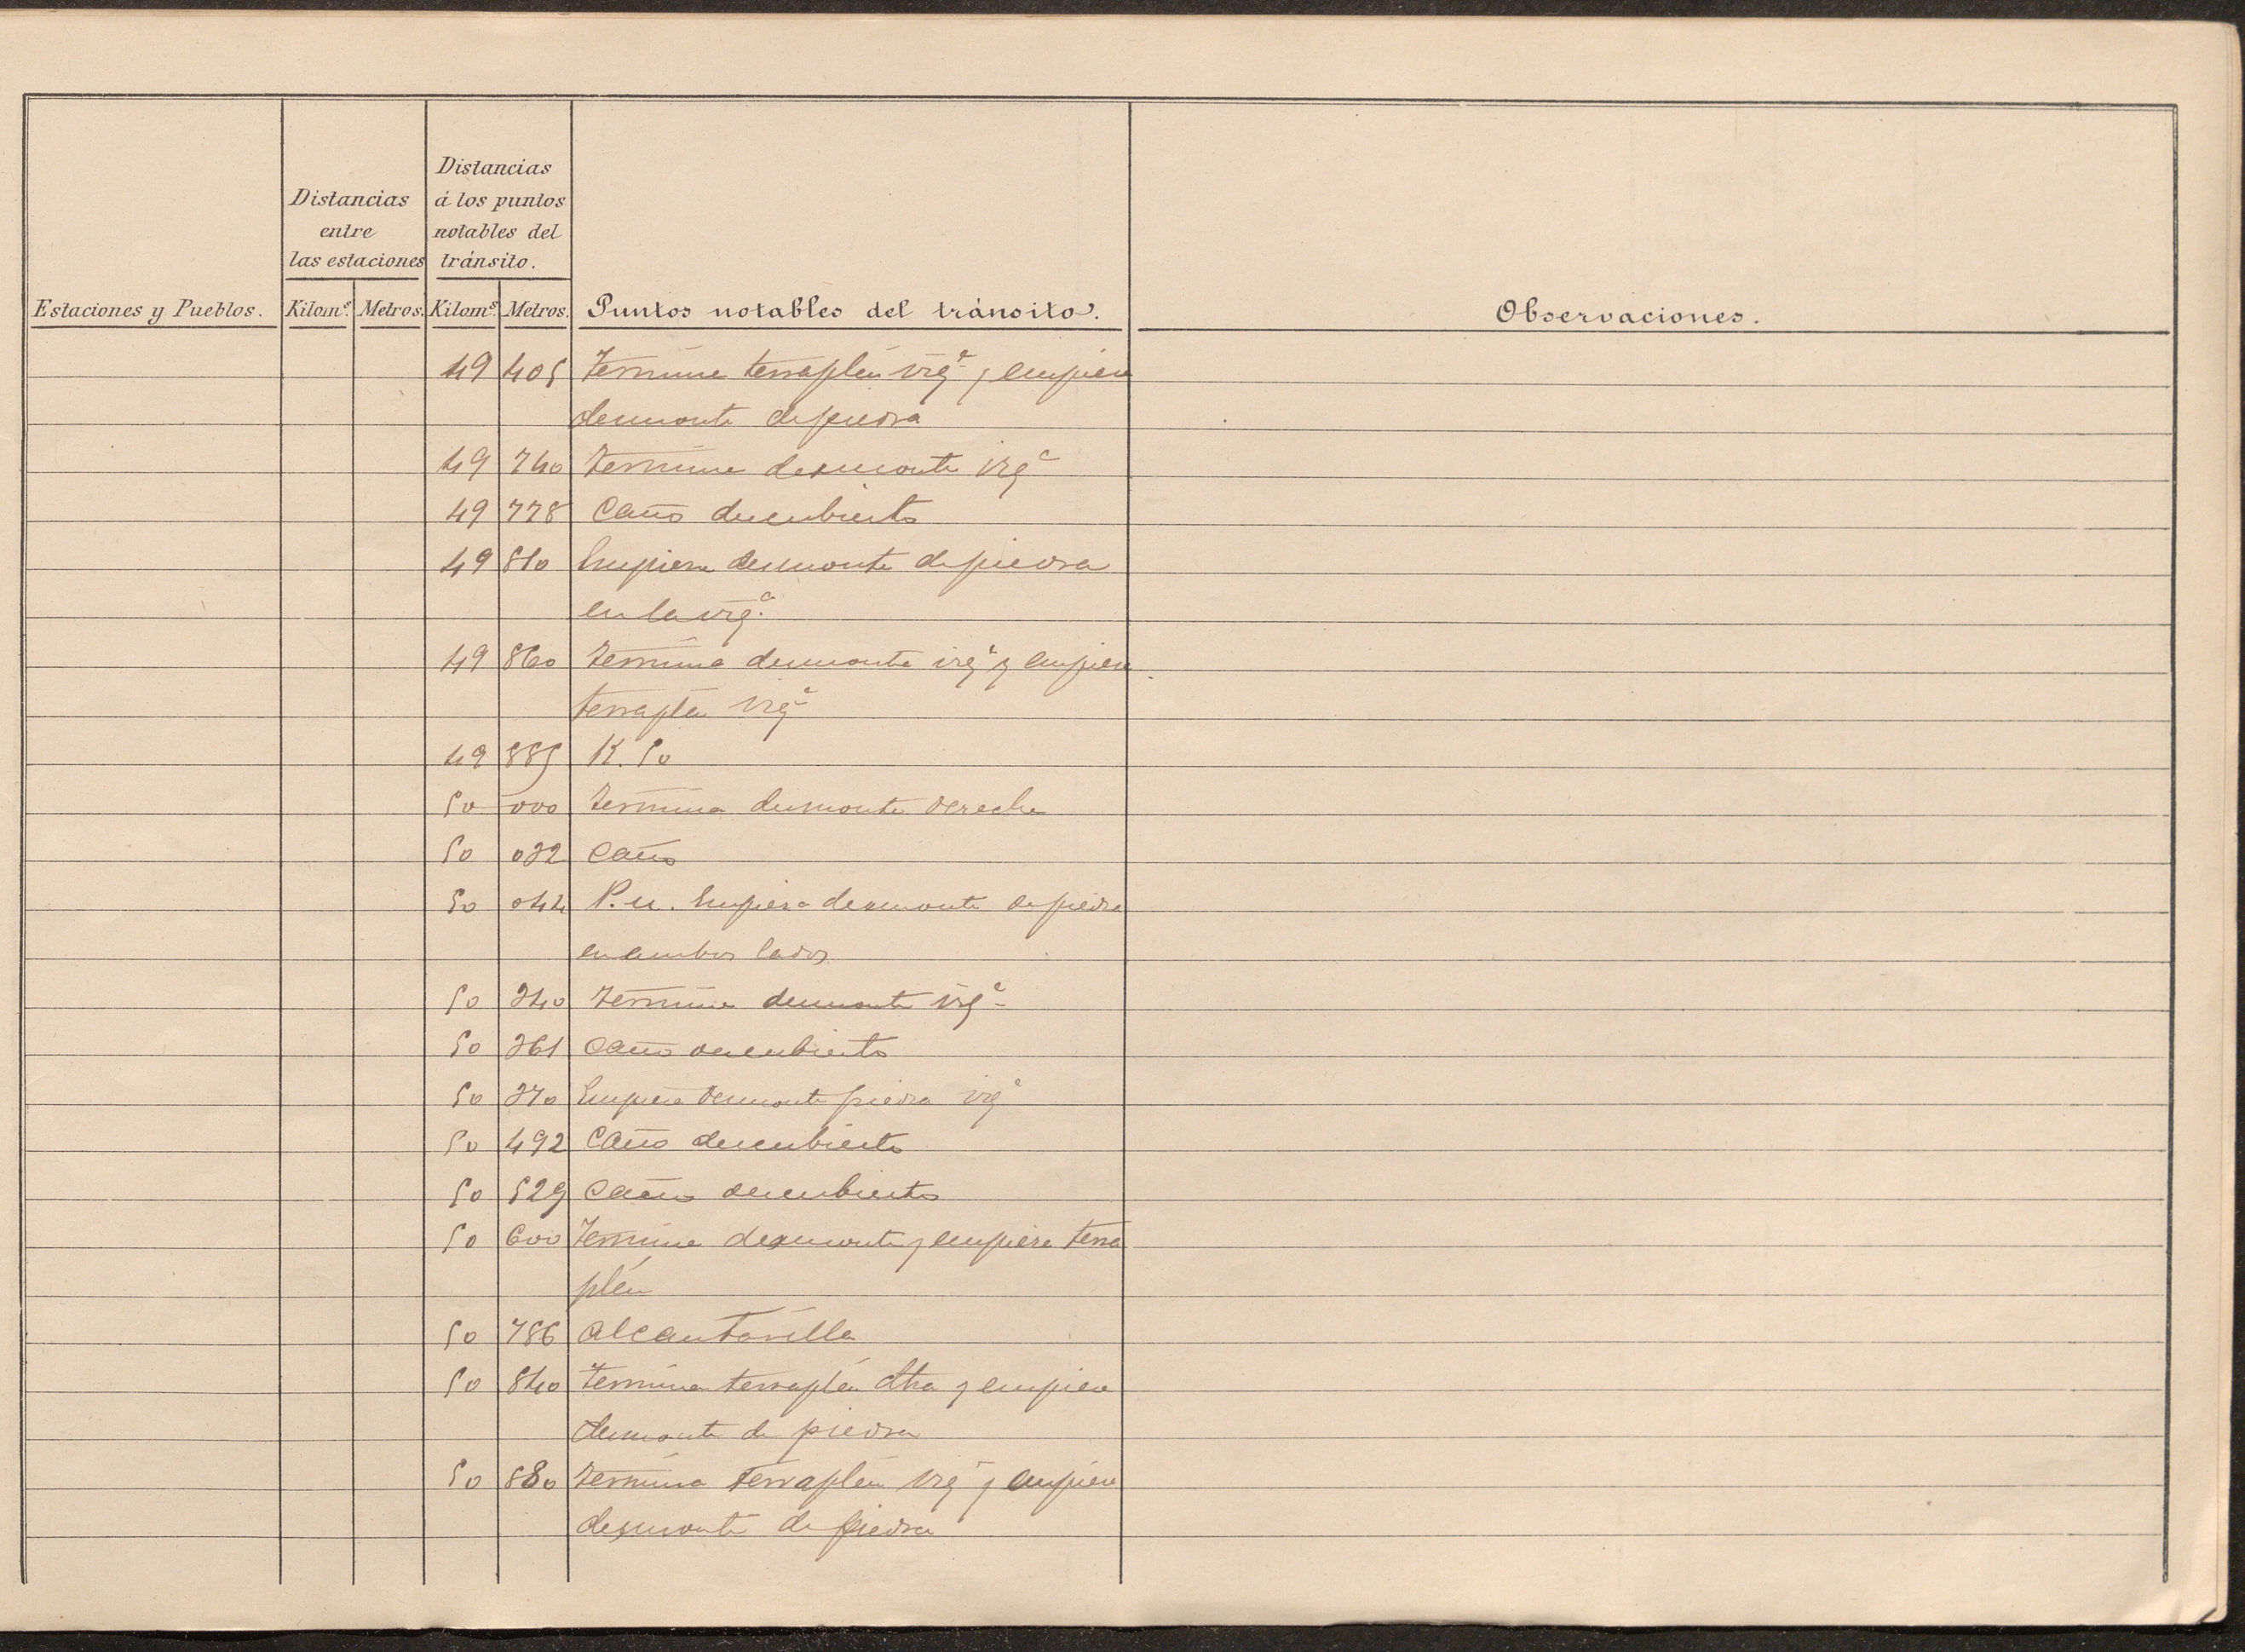 Estaciones y Pueblos.
Distancias
entre
las estaciones
Kilom.s Metros.
Distancias
á los puntos
notables del
tránsito.
Kilom.s Metros.
Puntos notables del tránsito.
Observaciones.
49 405 Termina terraplén izq.a y empieza
desmonte de piedra
49 740 Termina desmonte izq.a
49 778 Caño descubierto
49 810 Empieza desmonte de piedra
en la izq.a
49 860 Termina desmonte izq.a y empieza
terraplén izq.a
49 885 K. 50
50 000 Termina desmonte derecha
50 022 Caño
50 044 P. N. Empieza desmonte de piedra
en ambos lados
50 240 Termina desmonte izq.a
50 261 Caño descubierto
50 270 Empieza desmonte piedra izq.a
50 492 Caño descubierto
50 529 Caño descubierto
50 600 Termina desmonte y empieza terra
plén
50 786 Alcantarilla
50 840 Termina terraplén dha y empieza
desmonte de piedra
50 880 Termina terraplén izq.a y empieza
desmonte de piedra